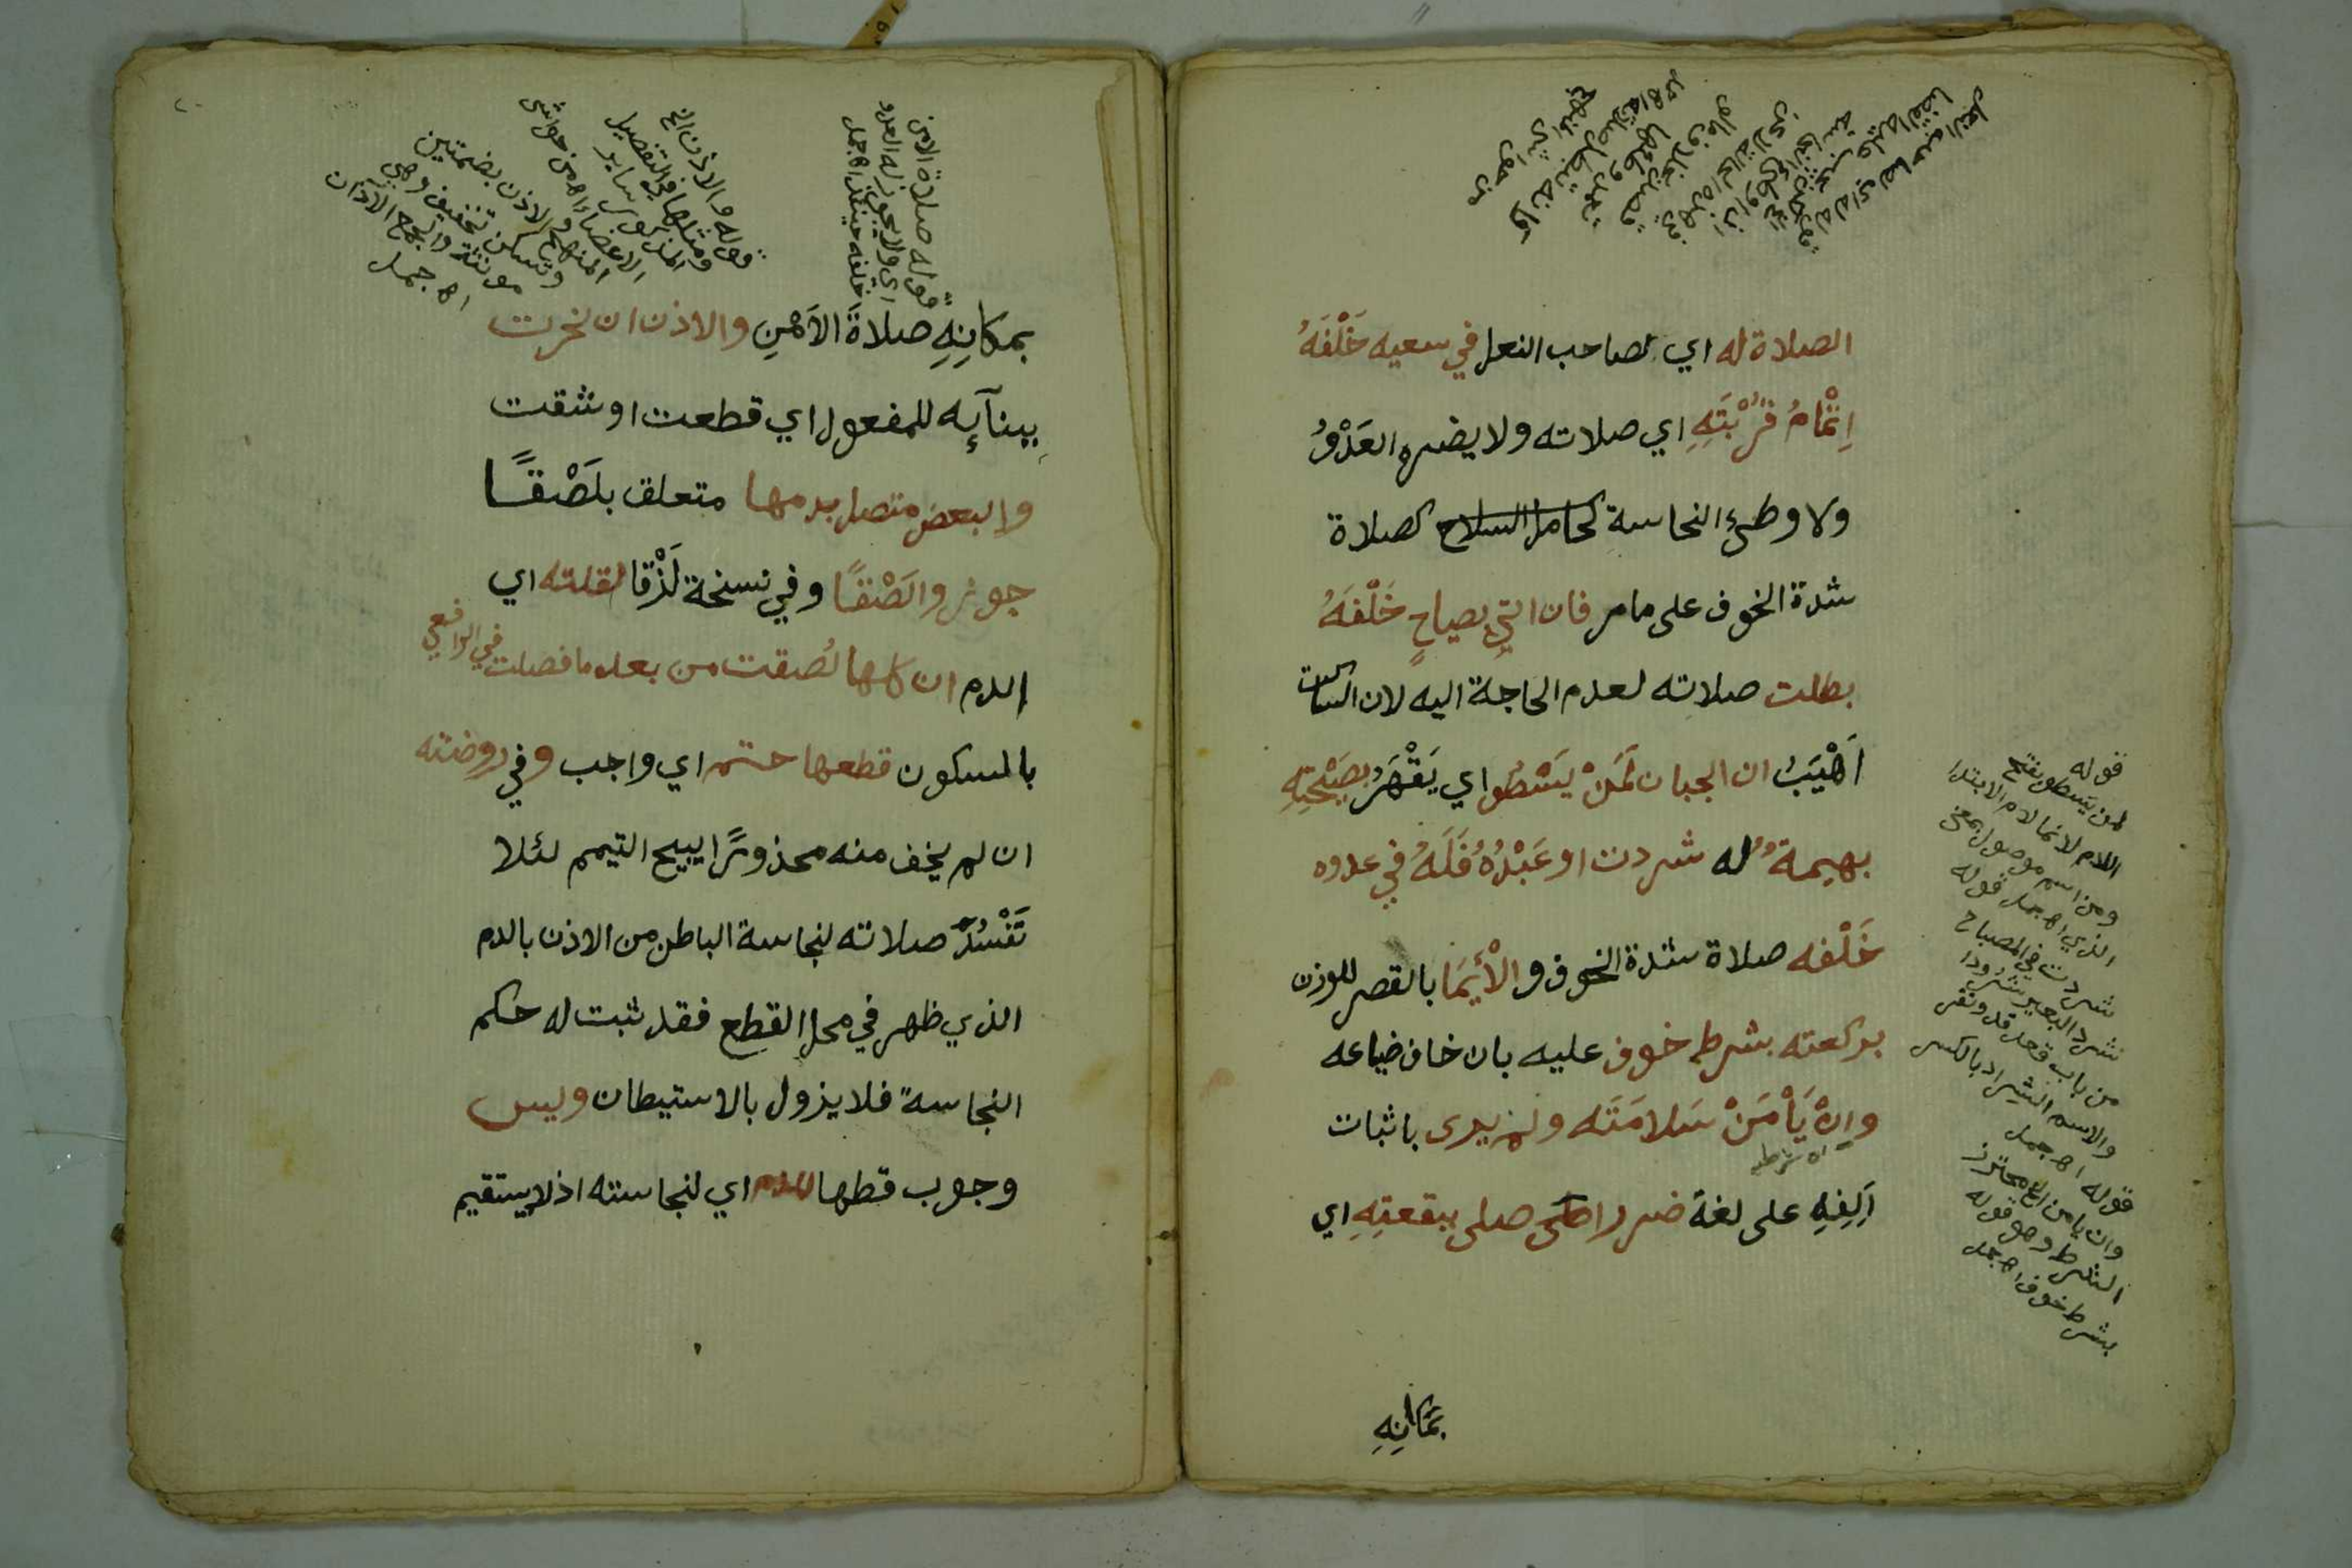 الصلاة له اي لصاحب النعل في سعيه خَلْفَهُ
اِتْمَامُ قُرْبَتِهِ اي صلاته ولا يضره العَدْوُ
ولا وطئ النجاسة كحامل السلاح كصلاة
شدة الخوف على ما مر فان اتي بصياحٍ خَلْفَهُ
بطلت صلاته لعدم الحاجة اليه لان الساكت
اَهْيَبُ ان الجبان لَمَنْ يَسْطُو اي يَقْهَرُ بصَيْحَتِهِ
بهيمةٌ له شردت او عَبْدُهُ فَلَهُ في عدوه
خَلْفه صلاة شدة الخوف والْأَيْمَا بالقصر للوزن
بركعته بشرط خوف عليه بان خاف ضياعه
وانْ يَأْمَنْ سَلامَتَه ولم يدرى باثبات
ان شرطيه
اَلِفِهِ على لغة ضررا طرى صلى ببقعتِهِ اي
بمَكَانِهِ
قوله
لمن يسطو بفتح
اللام لانها لام الابتدا
ومن اسم موصول بمعنى
الذي اهـ جمل قوله
شردت في المصباح
شرد البعير شُرُودا
من باب قعد ند ونفر
والاسم الشراد بالكسر
اهـ جمل
قوله
وان يامن الخ محترز
الشرط وهو قوله
بشرط خوف اهـ جمل
قوله صلاة الامن
اي ولا يجوز له العدو
خلفه حينئذ اهـ جمل
قوله والاذن الخ
ومثلها في التفصيل
المذكور ساير
الاعضاء اهـ من حواشي
المنهج والاذن بضمتين
وتسكن تخفيف وهي
مونثة والجمع الآذان
اهـ جمل
بمكانِهِ صلاةَ الاَمْنِ والاذن ان نخرت
بِبنآيِه للمفعول اي قطعت او شقت
والبعض متصل بدمها متعلق بلَصْقًا
جوز والَصْقًا وفي نسخة لَزْقا لقلته اي
الدم ان كلها لُصقت من بعد ما فصلت في الرافعي
بالسكون قطعها حتم اي واجب وفي روضته
ان لم يخف منه محذورًا يبيح التيمم لئلا
تَفْسُدَ صلاته لنجاسة الباطن من الاذن بالدم
الذي ظهر في محل القطع فقد ثبت له حكم
النجاسة فلا يزول بالاستيطان وليس
وجوب قطها للدم اي لنجاسته اذ لا يستقيم